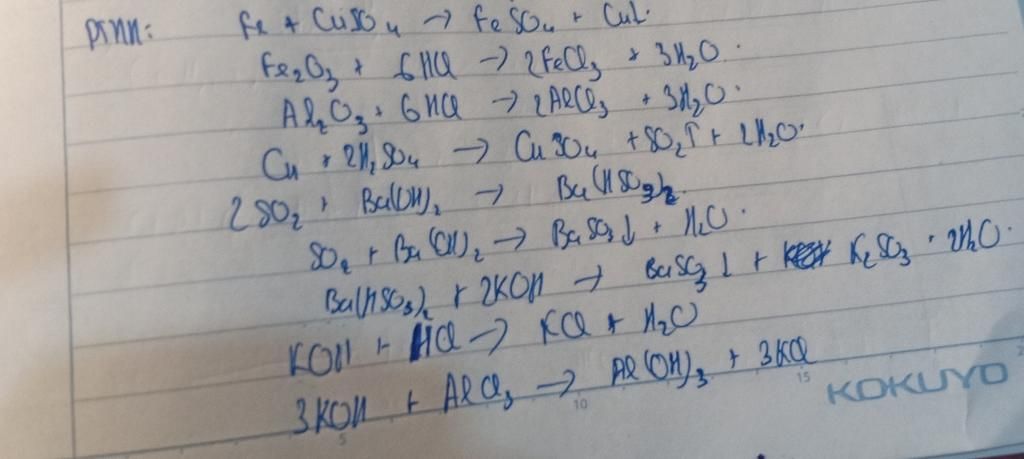 PTHH: Fe + CuSO₄ → FeSO₄ + Cu↓.
Fe₂O₃ + 6HCl → 2FeCl₃ + 3H₂O.
Al₂O₃ + 6HCl → 2AlCl₃ + 3H₂O.
Cu + 2H₂SO₄ → CuSO₄ + SO₂↑ + 2H₂O.
2SO₂ + Ba(OH)₂ → Ba(HSO₃)₂.
SO₂ + Ba(OH)₂ → BaSO₃↓ + H₂O.
Ba(HSO₃)₂ + 2KOH → BaSO₃↓ + K₂SO₃ + 2H₂O.
KOH + HCl → KCl + H₂O
3KOH + AlCl₃ → Al(OH)₃ + 3KCl
5 10 15
KOKUYO